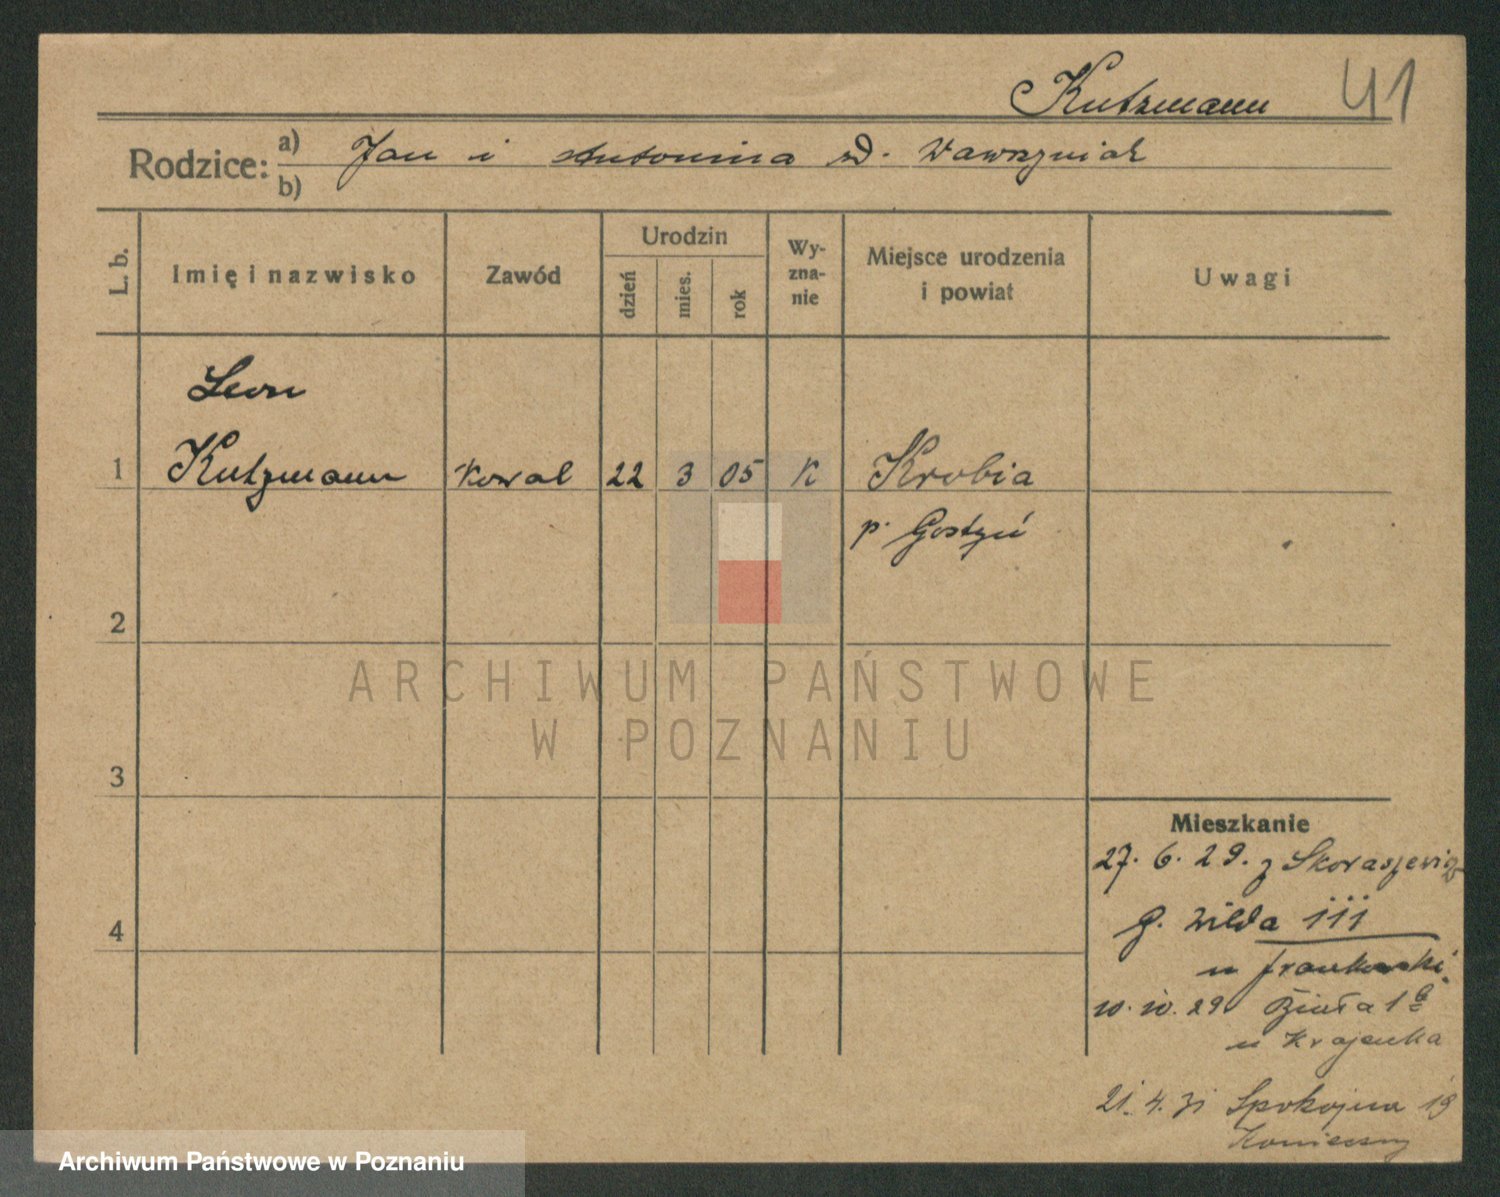 Kutzmann 41
Rodzice: a) Jan i Antonina d. Wawrzyniak
b)
L. b. Imię i nazwisko Zawód Urodzin dzień mies. rok Wy-zna-nie Miejsce urodzenia i powiat Uwagi
Leon
1 Kutzmann Kowal 22 3 05 K Krobia
p. Gostyń
2
ARCHIWUM PAŃSTWOWE
W POZNANIU
3
Mieszkanie
27. 6. 29. z Skoraszewic
4 g. Wilda 111
u Frankowski
10. 10. 29 Biała 1a
u Krajenka
21. 4. 31 Spokojna 19
Konieczny
Archiwum Państwowe w Poznaniu